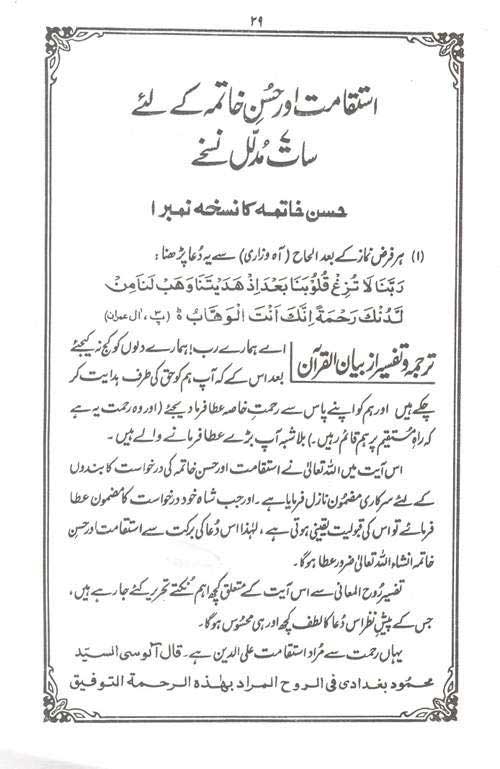 ۲۹
استقامت اور حُسنِ خاتمہ کے لئے
سات مُدلّل نسخے
حسن خاتمہ کا نسخہ نمبر ۱
(۱) ہر فرض نماز کے بعد الحاح (آہ وزاری) سے یہ دُعا پڑھنا :
رَبَّنَا لَا تُزِغْ قُلُوْبَنَا بَعْدَ اِذْ هَدَيْتَنَا وَهَبْ لَنَا مِنْ
لَّدُنْكَ رَحْمَةً اِنَّكَ اَنْتَ الْوَهَّابُ ۝ (پ۳، آل عمران)
ترجمہ و تفسیر از بیان القرآن
اے ہمارے رب! ہمارے دلوں کو کج نہ کیجئے
بعد اس کے کہ آپ ہم کو حق کی طرف ہدایت کر
چکے ہیں اور ہم کو اپنے پاس سے رحمتِ خاصہ عطا فرما دیجئے (اور وہ رحمت یہ ہے
کہ راہِ مُستقیم پر ہم قائم رہیں۔) بلاشبہ آپ بڑے عطا فرمانے والے ہیں۔
اس آیت میں اللہ تعالیٰ نے استقامت اور حسن خاتمہ کی درخواست کا بندوں
کے لئے سرکاری مضمون نازل فرمایا ہے۔ اور جب شاہ خود درخواست کا مضمون عطا
فرمائے تو اس کی قبولیت یقینی ہوتی ہے، لہٰذا اس دُعا کی برکت سے استقامت اور حسنِ
خاتمہ انشاء اللہ تعالیٰ ضرور عطا ہوگا۔
تفسیر رُوح المعانی سے اس آیت کے متعلق کچھ اہم نُکتے تحریر کئے جا رہے ہیں،
جس کے پیشِ نظر اس دُعا کا لطف کچھ اور ہی محسُوس ہوگا۔
یہاں رحمت سے مُراد استقامت علی الدین ہے۔ قال آلوسی السیّد
محمود بغدادی فی الروح المراد بهٰذه الرحمة التوفیق